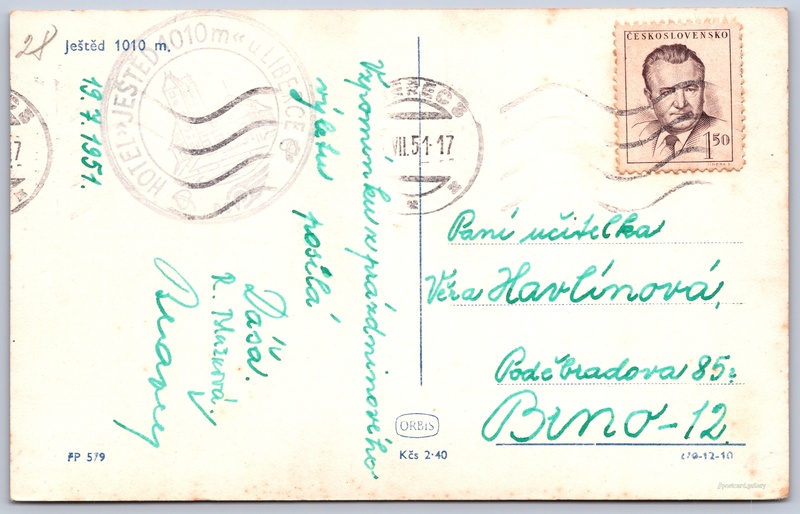 28
Ještěd 1010 m.
HOTEL »JEŠTĚD 1010 m« u LIBERCE
19.7.1951.
Vzpomínku z prázdninového
výletu posílá
Dáša.
R. Mužíková.
VII.51-17
ČESKOSLOVENSKO
1 50
Paní učitelka
Věra Havlínová,
Poděbradova 85.
Brno-12.
ORBIS
FP 579
Kčs 2·40